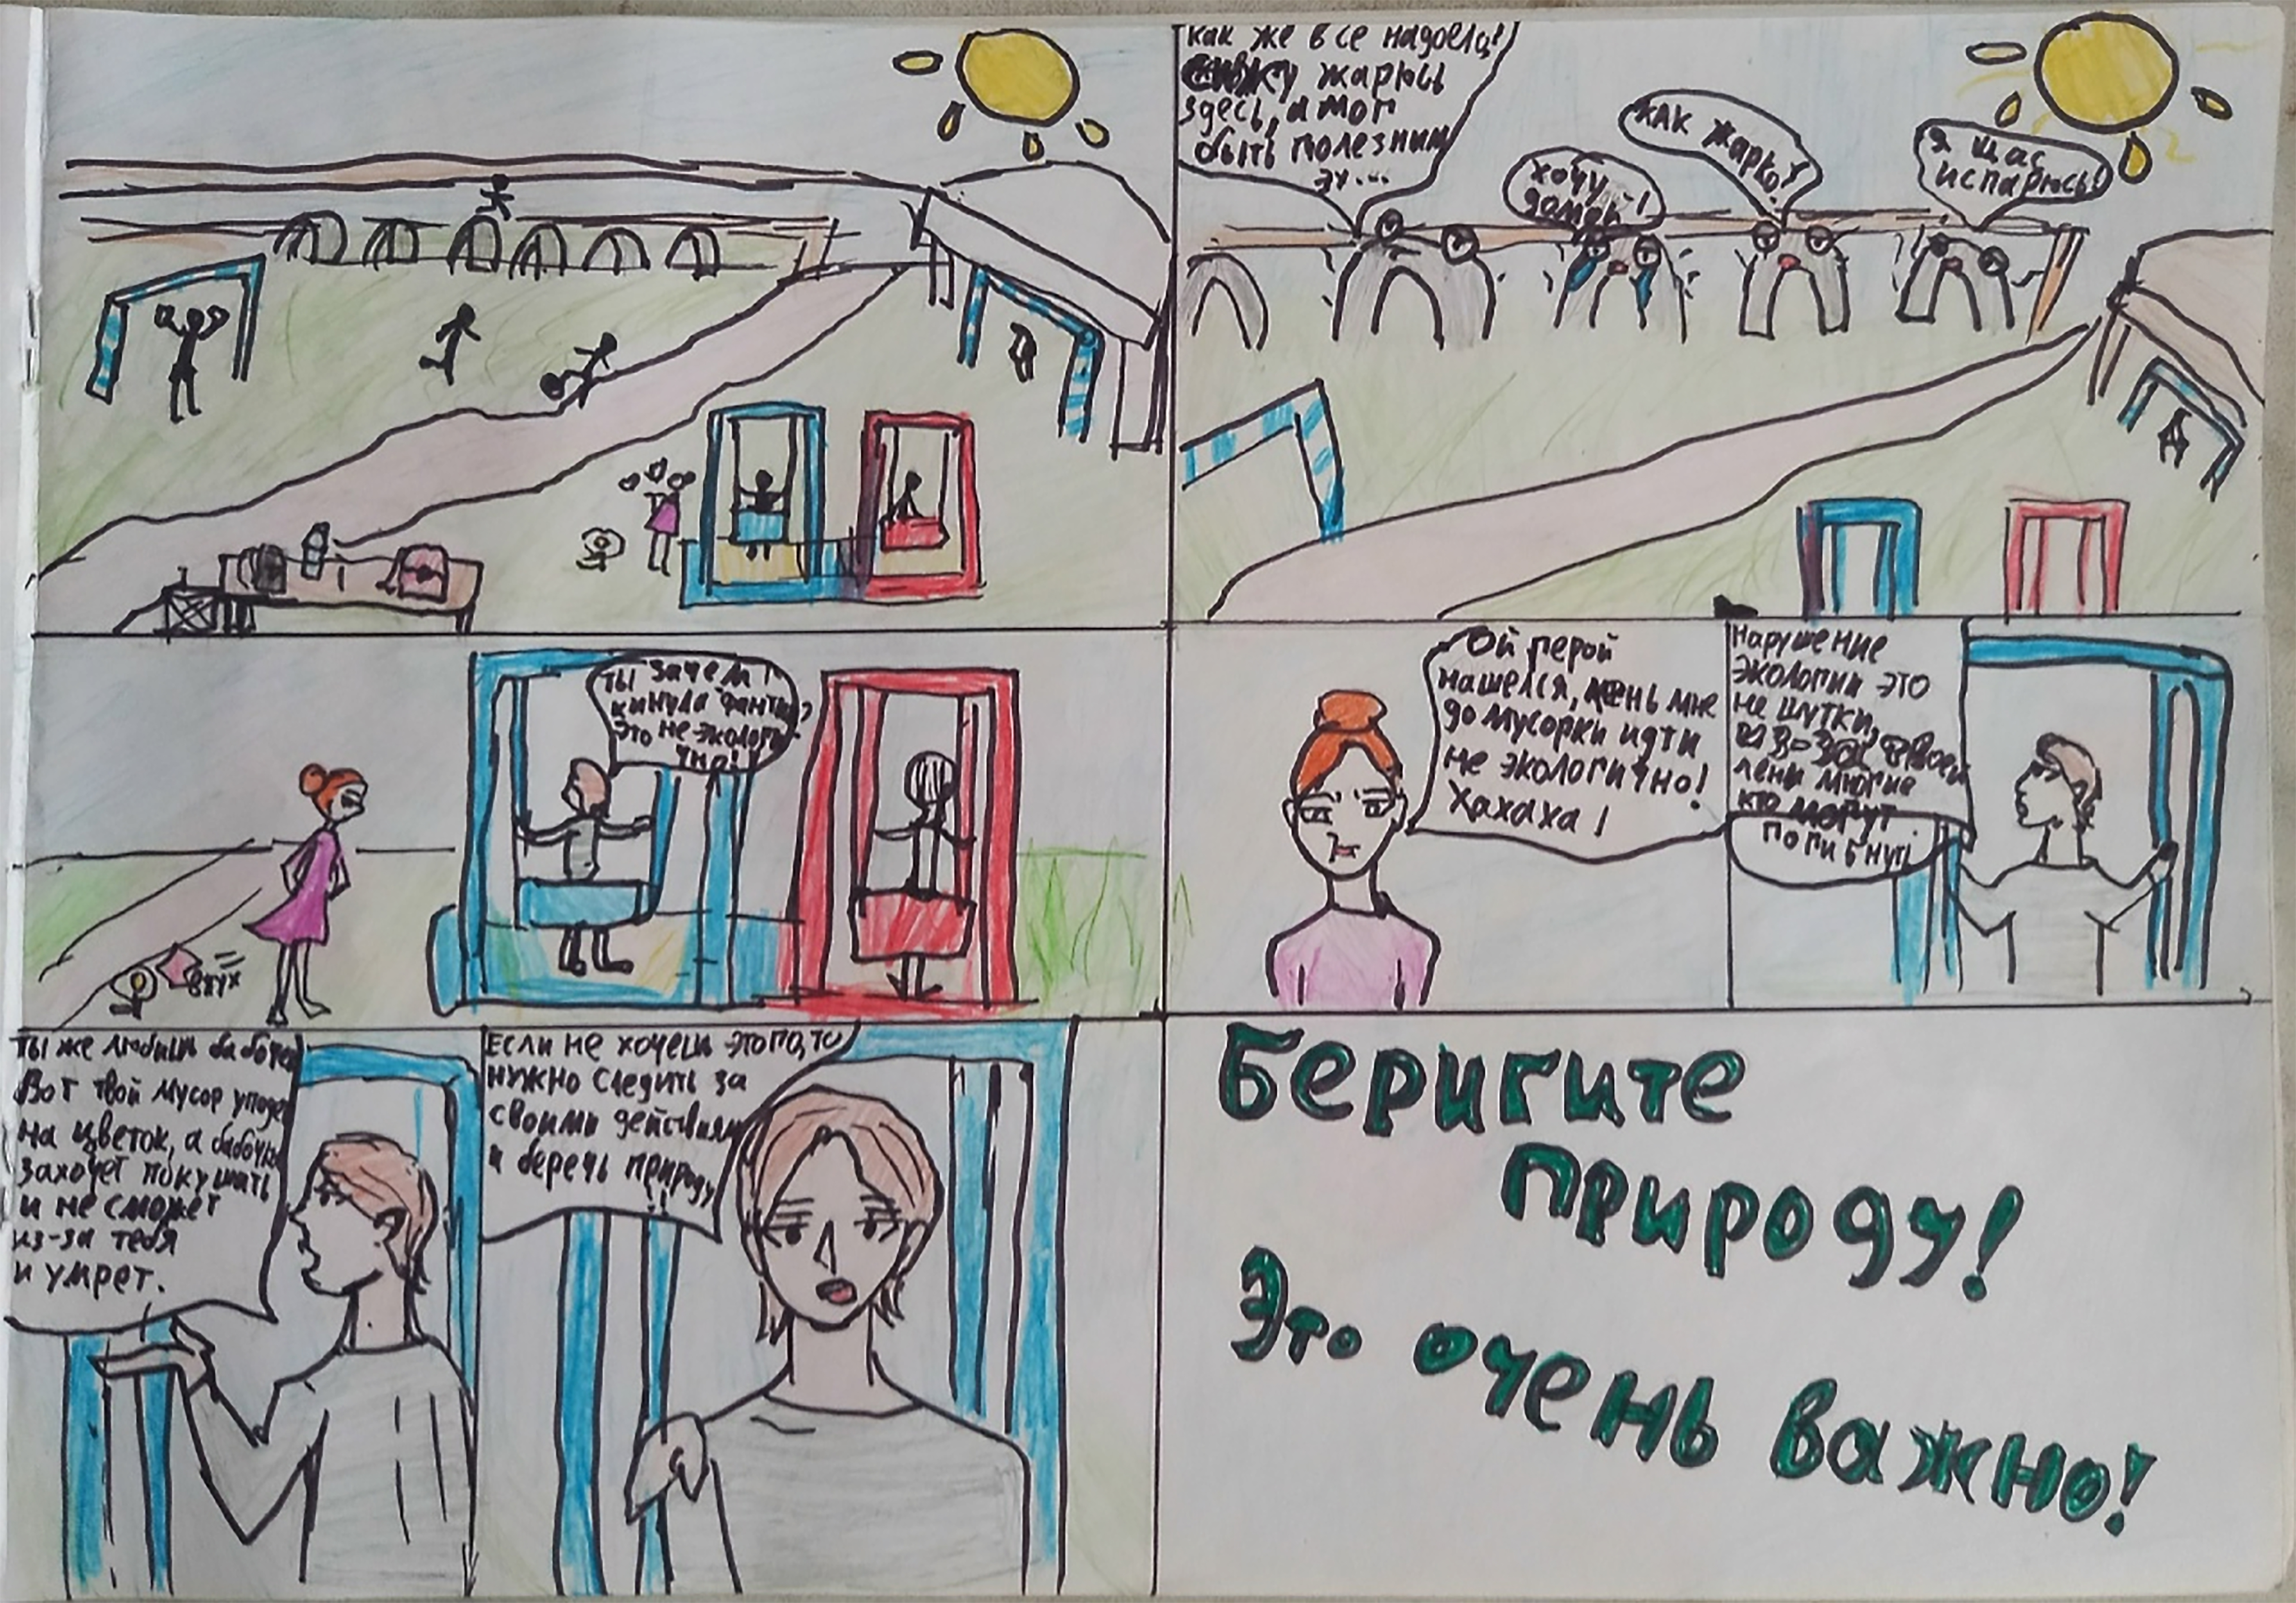 как же все надоело!
сижу жарюсь
здесь, а мог
быть полезным
эх...
хочу
домой!
КАК жарко!
Я щас
испарюсь!
ТЫ зачем
кинула фантик?
Это не экологи-
чно!
втух
Ой герой
нашелся, лень мне
до мусорки идти
не экологично!
Хахаха!
Нарушение
экологии это
не шутки,
из-за твоей
лени многие
кто могут
погибнуть
Ты же любишь бабочек
Вот твой мусор упадет
на цветок, а бабочка
захочет покушать
и не сможет
из-за тебя
и умрет.
Если не хочешь этого, то
нужно следить за
своими действиями
и беречь природу
!!
Беригите
природу!
Это очень важно!